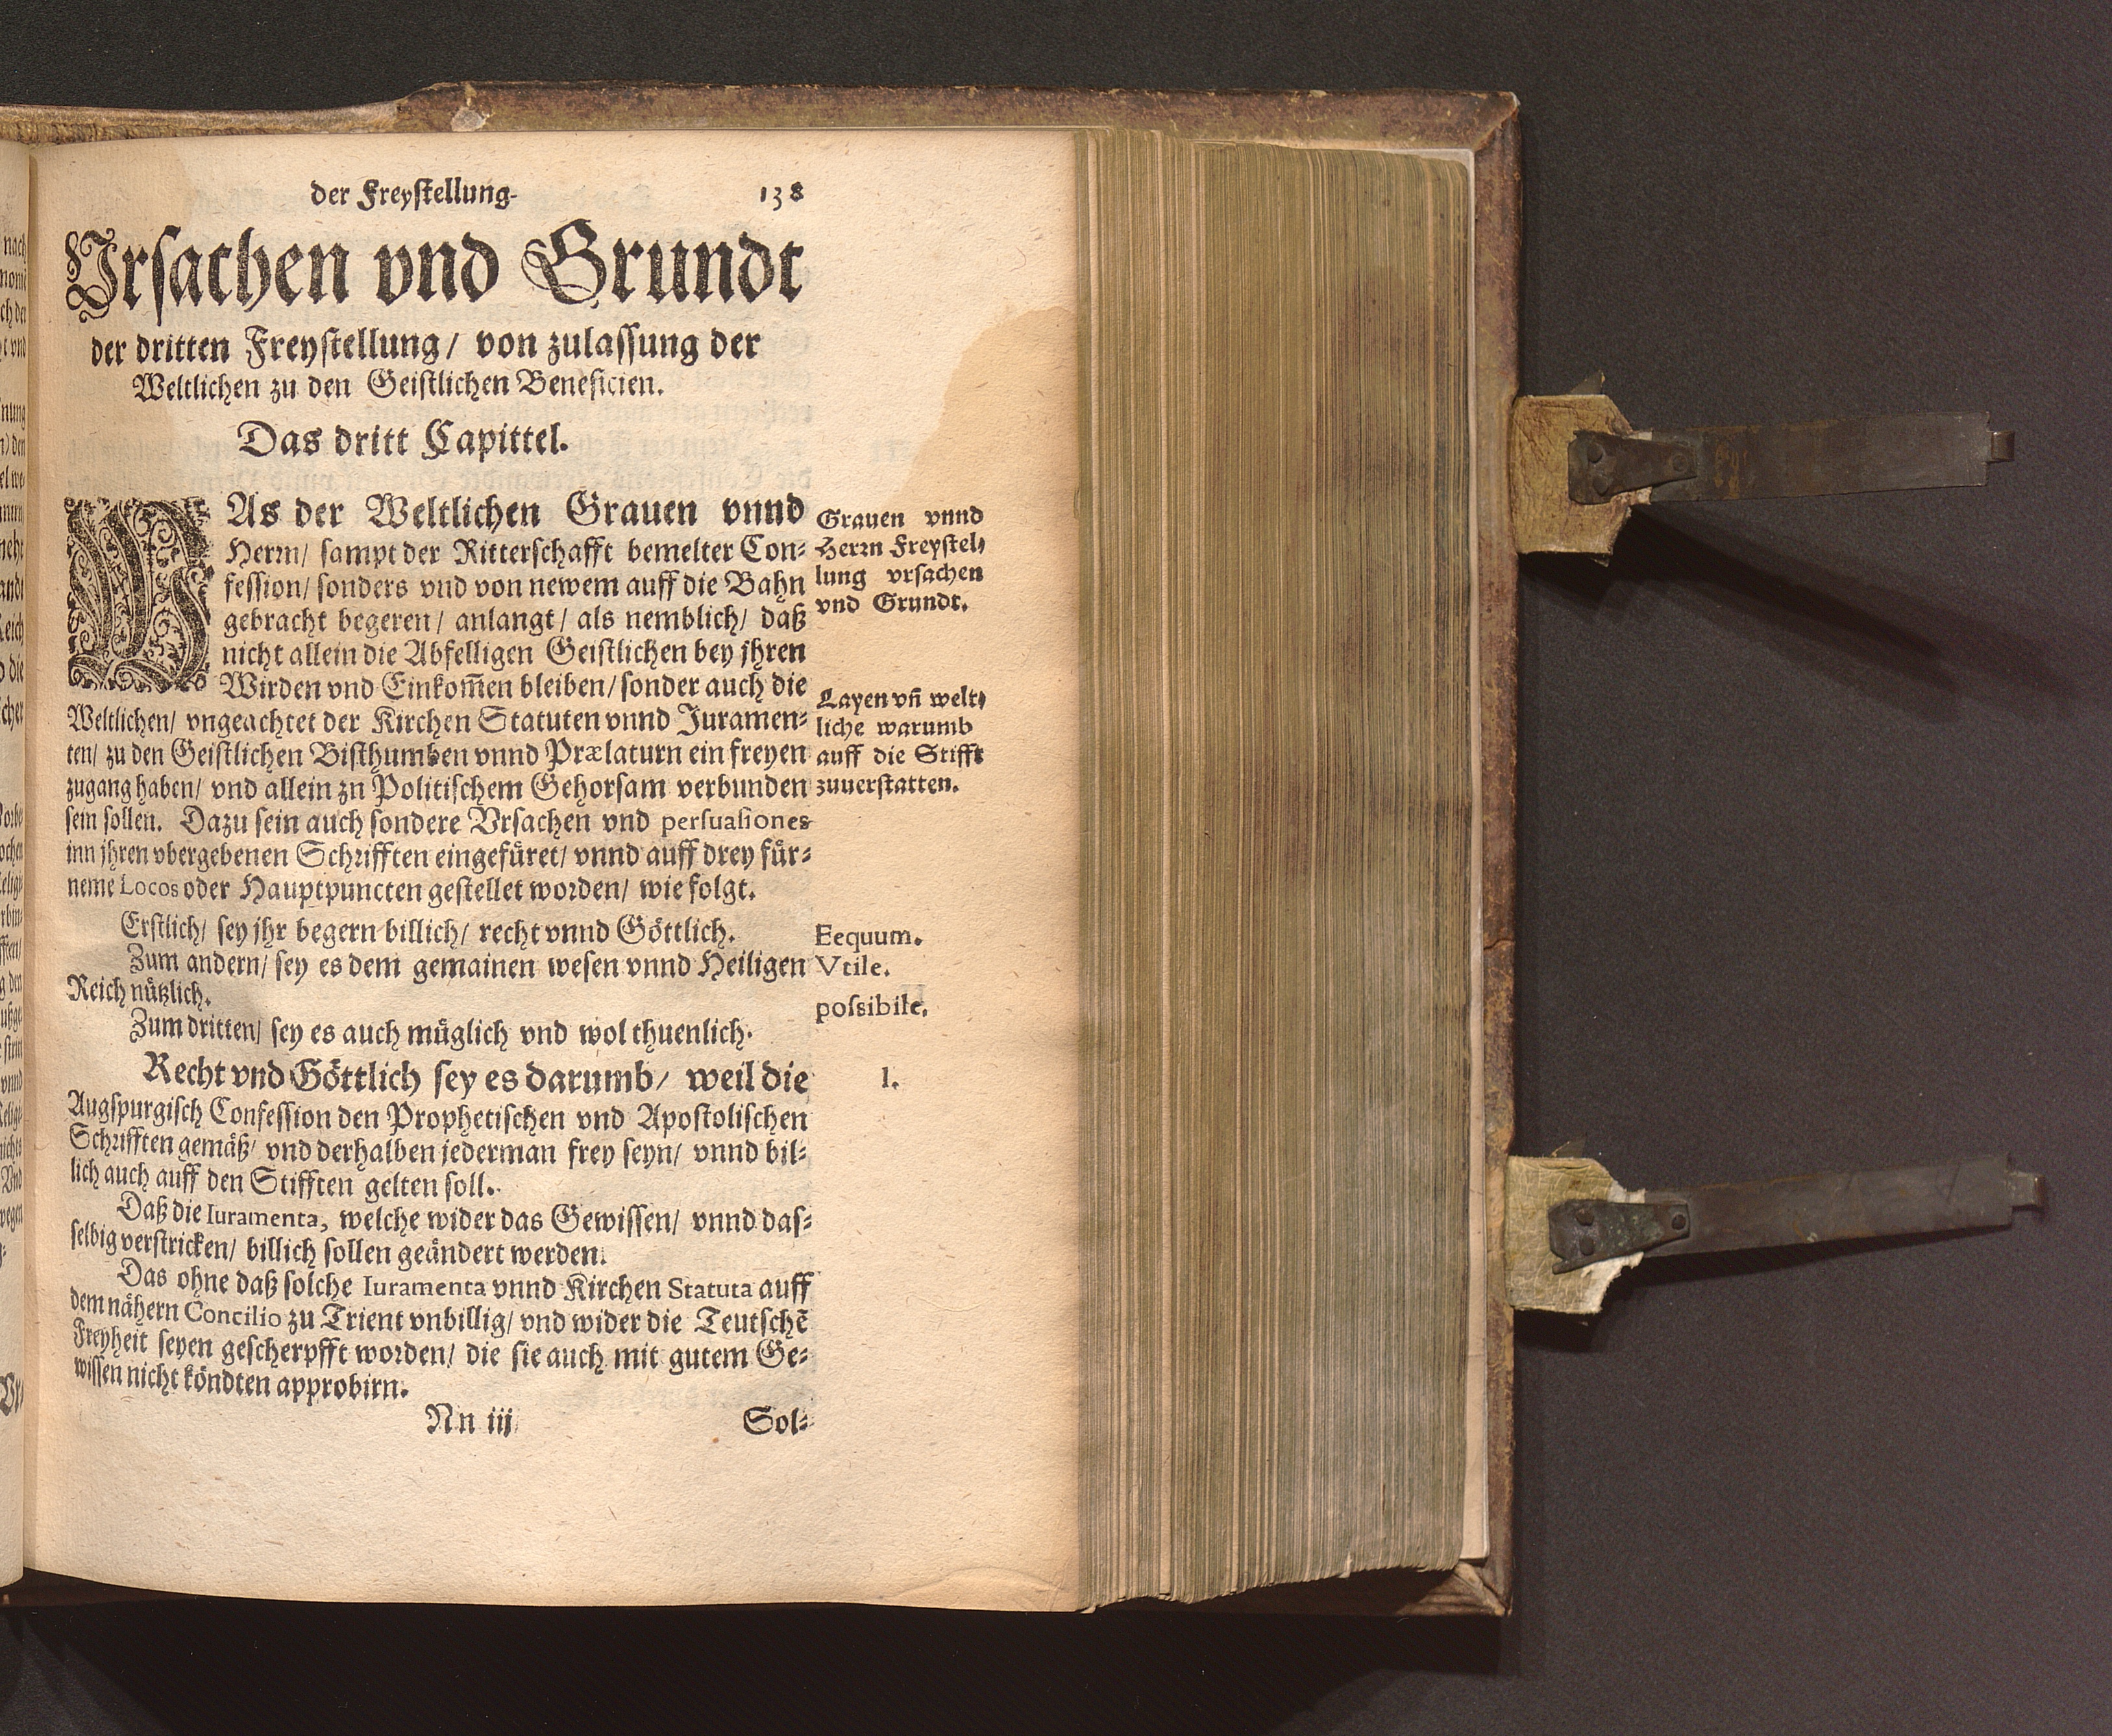 der Freystellung. 138
Vrsachen vnd Grundt
der dritten Freystellung/ von zulassung der
Weltlichen zu den Geistlichen Beneficien.
Das dritt Capittel.
WAs der Weltlichen Grauen vnnd
Herrn/ sampt der Ritterschafft bemelter Con-
fession/ sonders vnd von newem auff die Bahn
gebracht begeren/ anlangt/ als nemblich/ daß
nicht allein die Abfelligen Geistlichen bey jhren
Wirden vnd Einkom̃en bleiben/ sonder auch die
Weltlichen/ vngeachtet der Kirchen Statuten vnnd Juramen-
ten/ zu den Geistlichen Bisthumben vnnd Prælaturn ein freyen
zugang haben/ vnd allein zn Politischem Gehorsam verbunden
sein sollen. Dazu sein auch sondere Vrsachen vnd persuasiones
inn jhren vbergebenen Schrifften eingefüret/ vnnd auff drey für-
neme Locos oder Hauptpuncten gestellet worden/ wie folgt.
Erstlich/ sey jhr begern billich/ recht vnnd Göttlich.
Zum andern/ sey es dem gemainen wesen vnnd Heiligen
Reich nützlich.
Zum dritten/ sey es auch müglich vnd wol thuenlich.
Recht vnd Göttlich sey es darumb/ weil die
Augspurgisch Confession den Prophetischen vnd Apostolischen
Schrifften gemäß/ vnd derhalben jederman frey seyn/ vnnd bil-
lich auch auff den Stifften gelten soll.
Daß die Iuramenta, welche wider das Gewissen/ vnnd das-
selbig verstricken/ billich sollen geändert werden.
Das ohne daß solche Iuramenta vnnd Kirchen Statuta auff
dem nähern Concilio zu Trient vnbillig/ vnd wider die Teutschē
Freyheit seyen gescherpfft worden/ die sie auch mit gutem Ge-
wissen nicht köndten approbirn.
Nn iij Sol-
Grauen vnnd
Herrn Freystel-
lung vrsachen
vnd Grundt.
Layen vn̄ welt-
liche warumb
auff die Stifft
zuuerstatten.
Eequum.
Vtile.
possibile.
1.